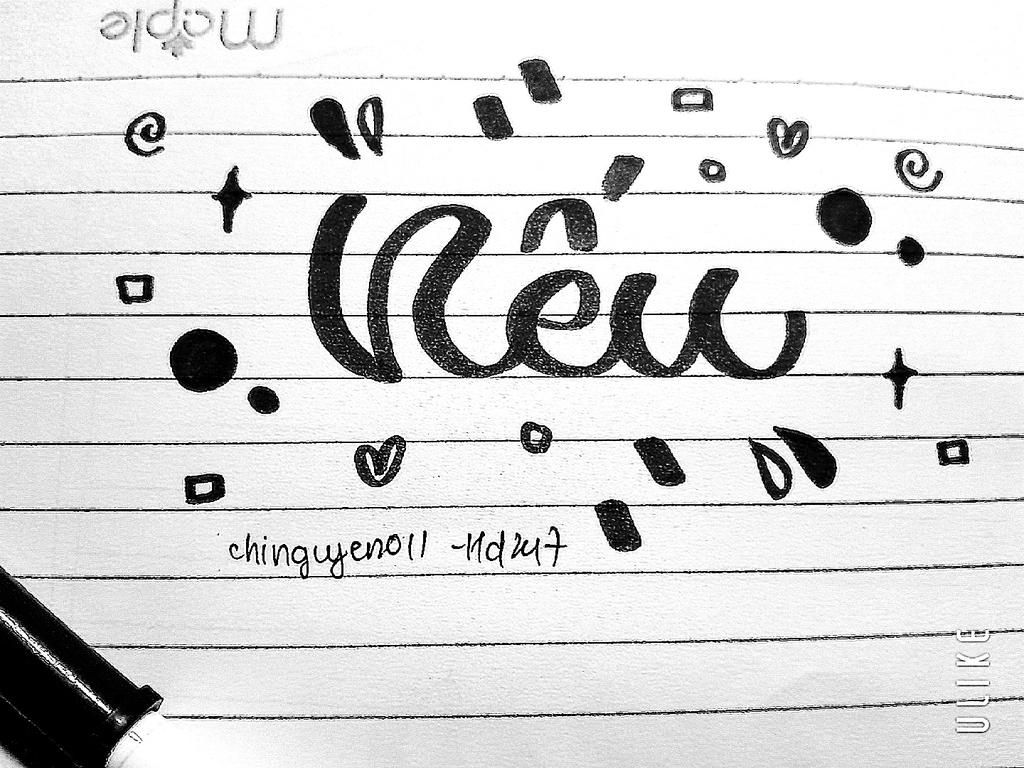 Maple
Nếu
chinguyen011 -Hd247
ULIKE